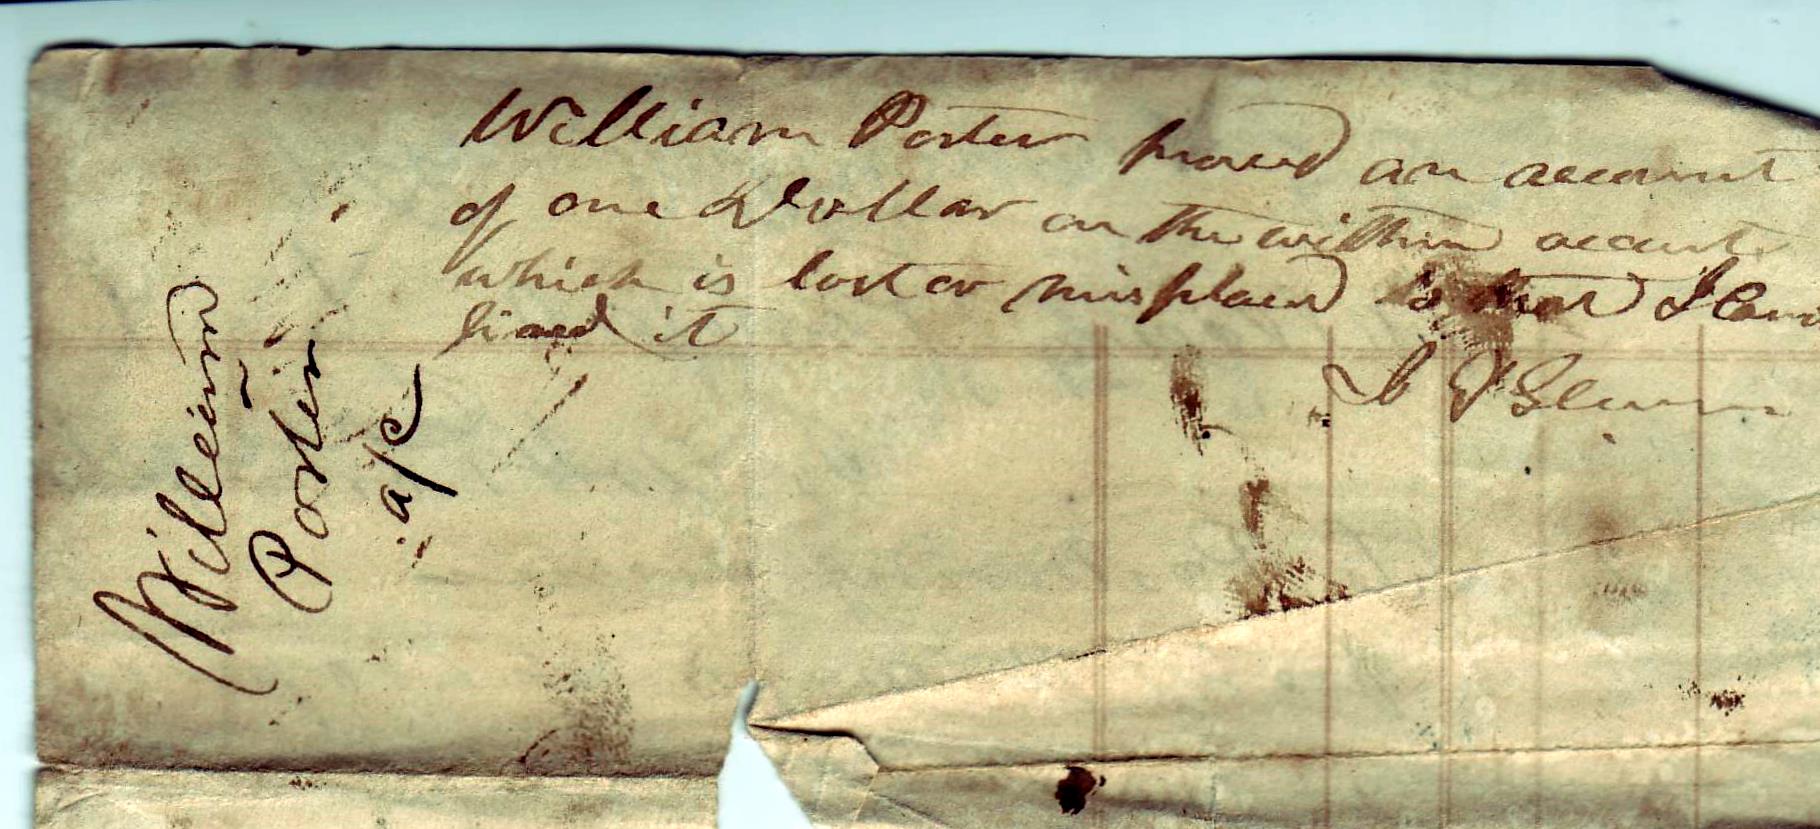 William Porter proved an account
of one Dollar on the within account
which is lost or misplaced so that I
find it
William
Porter
a/c